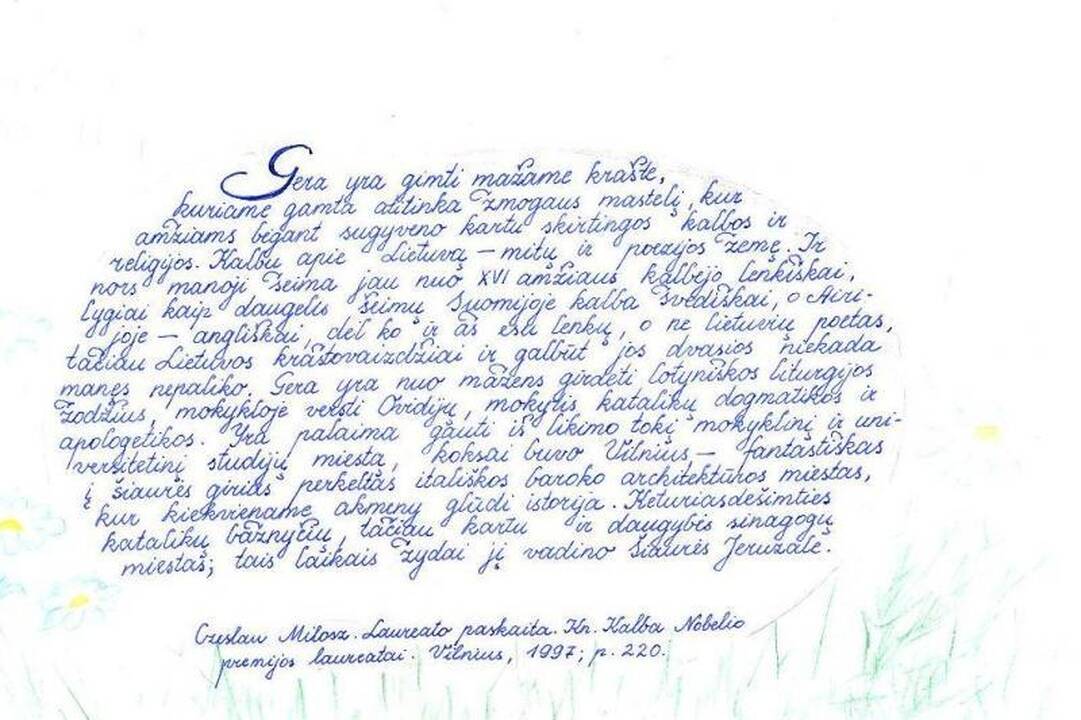 Gera yra gimti mažame krašte,
kuriame gamta atitinka žmogaus mastelį, kur
amžiams bėgant sugyveno kartu skirtingos kalbos ir
religijos. Kalbu apie Lietuvą – mitų ir poezijos žemę. Ir
nors manoji šeima jau nuo XVI amžiaus kalbėjo lenkiškai,
lygiai kaip daugelis šeimų Suomijoje kalba švediškai, o Airi-
joje – angliškai, dėl ko ir aš esu lenkų, o ne lietuvių poetas,
tačiau Lietuvos kraštovaizdžiai ir galbūt jos dvasios niekada
manęs nepaliko. Gera yra nuo mažens girdėti lotyniškos liturgijos
žodžius, mokykloje versti Ovidijų, mokytis katalikų dogmatikos ir
apologetikos. Yra palaima gauti iš likimo tokį mokyklinį ir uni-
versitetinį studijų miestą, koksai buvo Vilnius – fantastiškas
į šiaurės girias perkeltas itališkos baroko architektūros miestas,
kur kiekviename akmeny glūdi istorija. Keturiasdešimties
katalikų bažnyčių, tačiau kartu ir daugybės sinagogų
miestas; tais laikais žydai jį vadino Šiaurės Jeruzale.
Czeslaw Milosz. Laureato paskaita. Kn. Kalba Nobelio
premijos laureatai. Vilnius, 1997; p. 220.